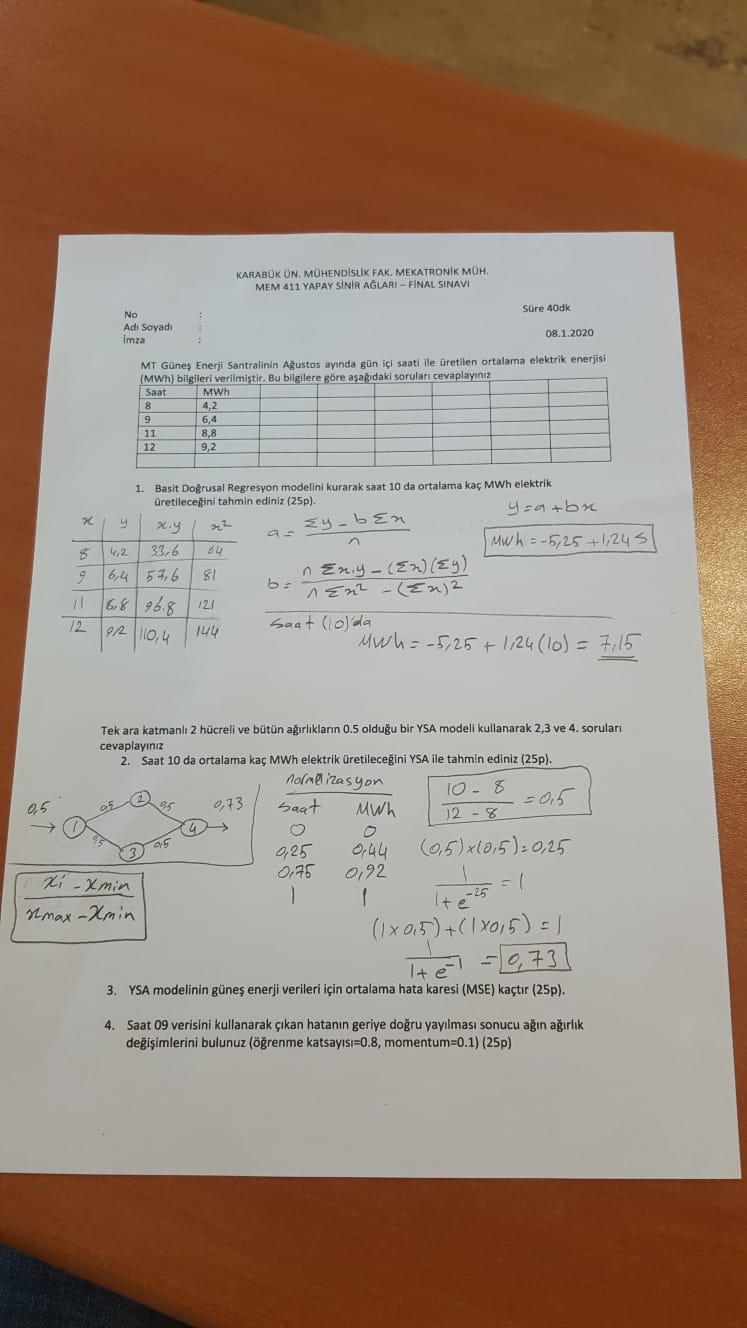 KARABÜK ÜN. MÜHENDİSLİK FAK. MEKATRONİK MÜH.
MEM 411 YAPAY SİNİR AĞLARI – FİNAL SINAVI
No :
Süre 40dk
Adı Soyadı :
İmza :
08.1.2020
MT Güneş Enerji Santralinin Ağustos ayında gün içi saati ile üretilen ortalama elektrik enerjisi
(MWh) bilgileri verilmiştir. Bu bilgilere göre aşağıdaki soruları cevaplayınız
Saat MWh
8 4,2
9 6,4
11 8,8
12 9,2
1. Basit Doğrusal Regresyon modelini kurarak saat 10 da ortalama kaç MWh elektrik
üretileceğini tahmin ediniz (25p).
x y x.y x²
8 4,2 33,6 64
9 6,4 57,6 81
11 8,8 96.8 121
12 9,2 110,4 144
a = Σy - bΣx / n
b = n Σx.y - (Σx)(Σy) / n Σx² - (Σx)²
y = a + bx
MWh = -5,25 + 1,24 S
Saat (10)'da
MWh = -5,25 + 1,24 (10) = 7,15
Tek ara katmanlı 2 hücreli ve bütün ağırlıkların 0.5 olduğu bir YSA modeli kullanarak 2,3 ve 4. soruları
cevaplayınız
2. Saat 10 da ortalama kaç MWh elektrik üretileceğini YSA ile tahmin ediniz (25p).
0,5 1 0,5 2 0,5 4 0,73
0,5 3 0,5
xi - xmin / xmax - xmin
normalizasyon
Saat MWh
0 0
0,25 0,44
0,75 0,92
1 1
10 - 8 / 12 - 8 = 0,5
(0,5)x(0,5) = 0,25
1 / 1 + e^-25 = 1
(1x0,5)+(1x0,5) = 1
1 / 1 + e^-1 = 0,73
3. YSA modelinin güneş enerji verileri için ortalama hata karesi (MSE) kaçtır (25p).
4. Saat 09 verisini kullanarak çıkan hatanın geriye doğru yayılması sonucu ağın ağırlık
değişimlerini bulunuz (öğrenme katsayısı=0.8, momentum=0.1) (25p)